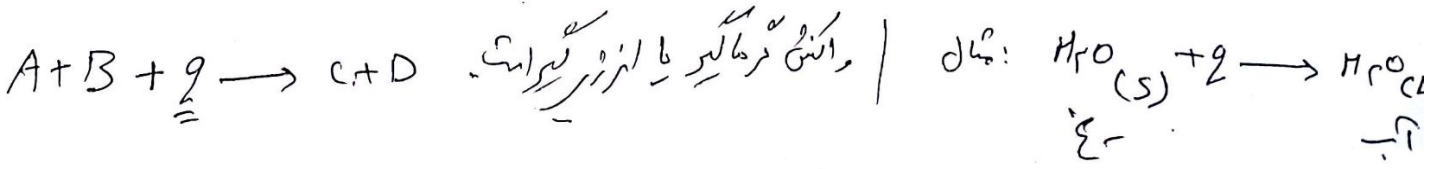 A+B + q → C+D واکنش گرماگیر یا انرژی گیر است. | مثال: H۲O(s) + q → H۲O(L
یخ آب